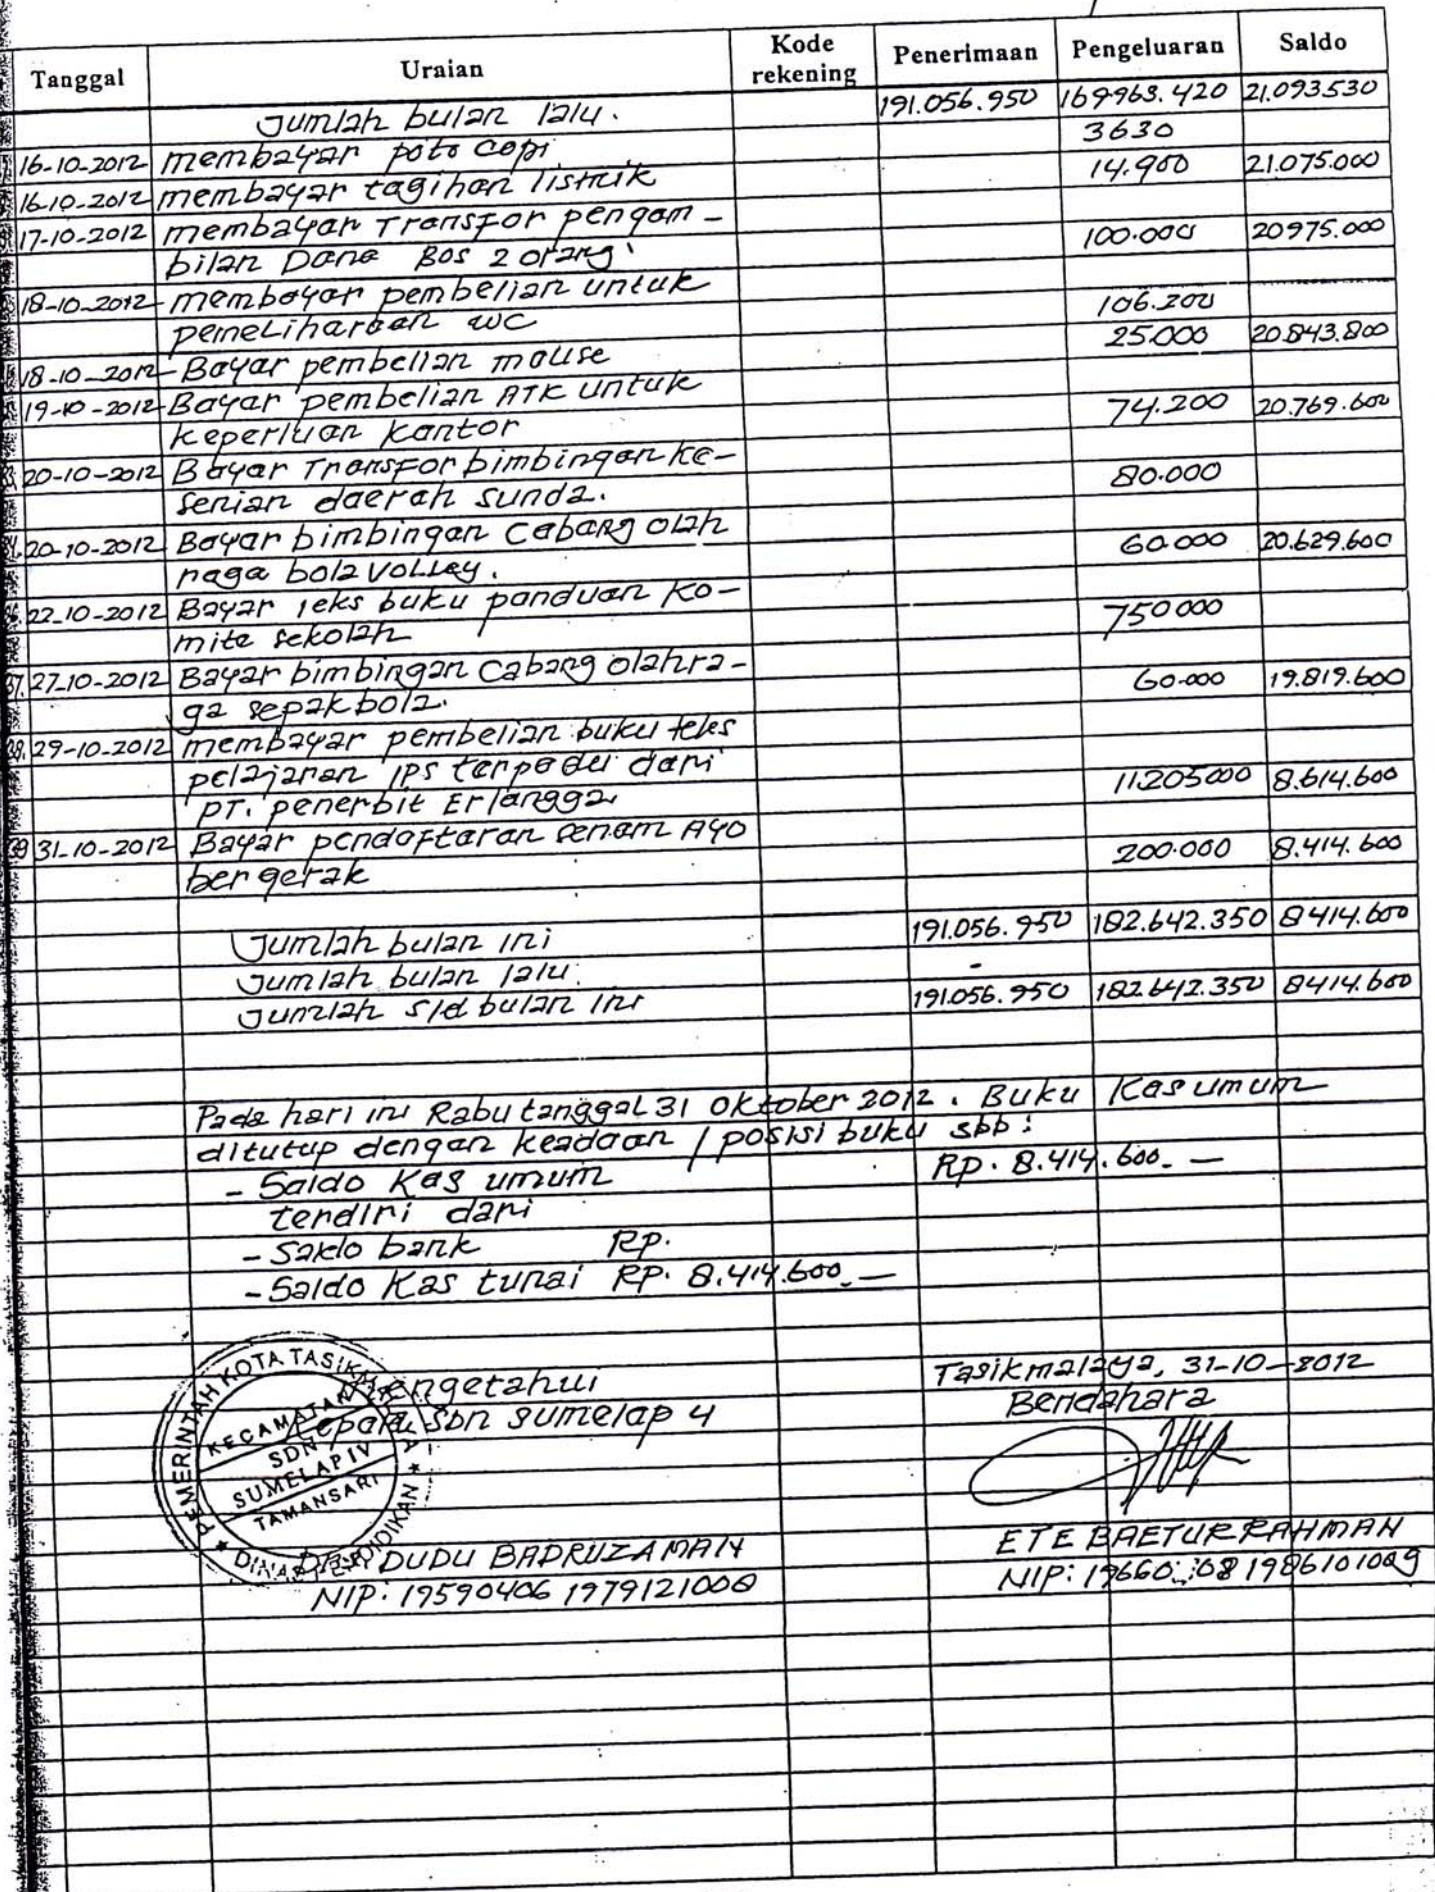 Tanggal Uraian Kode rekening Penerimaan Pengeluaran Saldo
Jumlah bulan lalu. 191.056.950 169963.420 21.093530
16-10-2012 membayar poto copi 3630
16-10-2012 membayar tagihan listrik 14.900 21.075.000
17-10-2012 membayar Transfor pengam-
bilan Dana Bos 2 orang. 100.000 20975.000
18-10-2012 membayar pembelian untuk
pemeliharaan wc 106.200
18-10-2012 Bayar pembelian mouse 25.000 20.843.800
19-10-2012 Bayar pembelian ATK untuk
keperluan kantor 74.200 20.769.600
20-10-2012 Bayar Transfor bimbingan ke-
senian daerah sunda. 80.000
20-10-2012 Bayar bimbingan Cabang olah
raga bola volley. 60.000 20.629.600
22-10-2012 Bayar teks buku panduan Ko-
mite sekolah 750000
37. 27-10-2012 Bayar bimbingan Cabang olahra-
ga sepak bola. 60.000 19.819.600
38. 29-10-2012 membayar pembelian buku teks
pelajaran IPS terpadu dari
PT. penerbit Erlangga 11.205000 8.614.600
39 31-10-2012 Bayar pendaftaran senam Ayo
bergerak 200.000 8.414.600
Jumlah bulan ini 191.056.950 182.642.350 8414.600
Jumlah bulan lalu. -
Jumlah s/d bulan ini 191.056.950 182.642.350 8414.600
Pada hari ini Rabu tanggal 31 Oktober 2012. Buku Kas umum
ditutup dengan keadaan / posisi buku sbb:
- Saldo Kas umum Rp. 8.414.600.-
terdiri dari
- Saldo bank Rp.
- Saldo Kas tunai Rp. 8.414.600.-
Tasikmalaya, 31-10-2012
Mengetahui Bendahara
Kepala SDN Sumelap 4
PEMERINTAH KOTA TASIKMALAYA
KECAMATAN
SDN
SUMELAP IV
TAMANSARI
DINAS PENDIDIKAN
DUDU BADRUZAMAN
NIP: 19590406 1979121008
ETE BAETUR RAHMAN
NIP: 19660 08 198610 1009